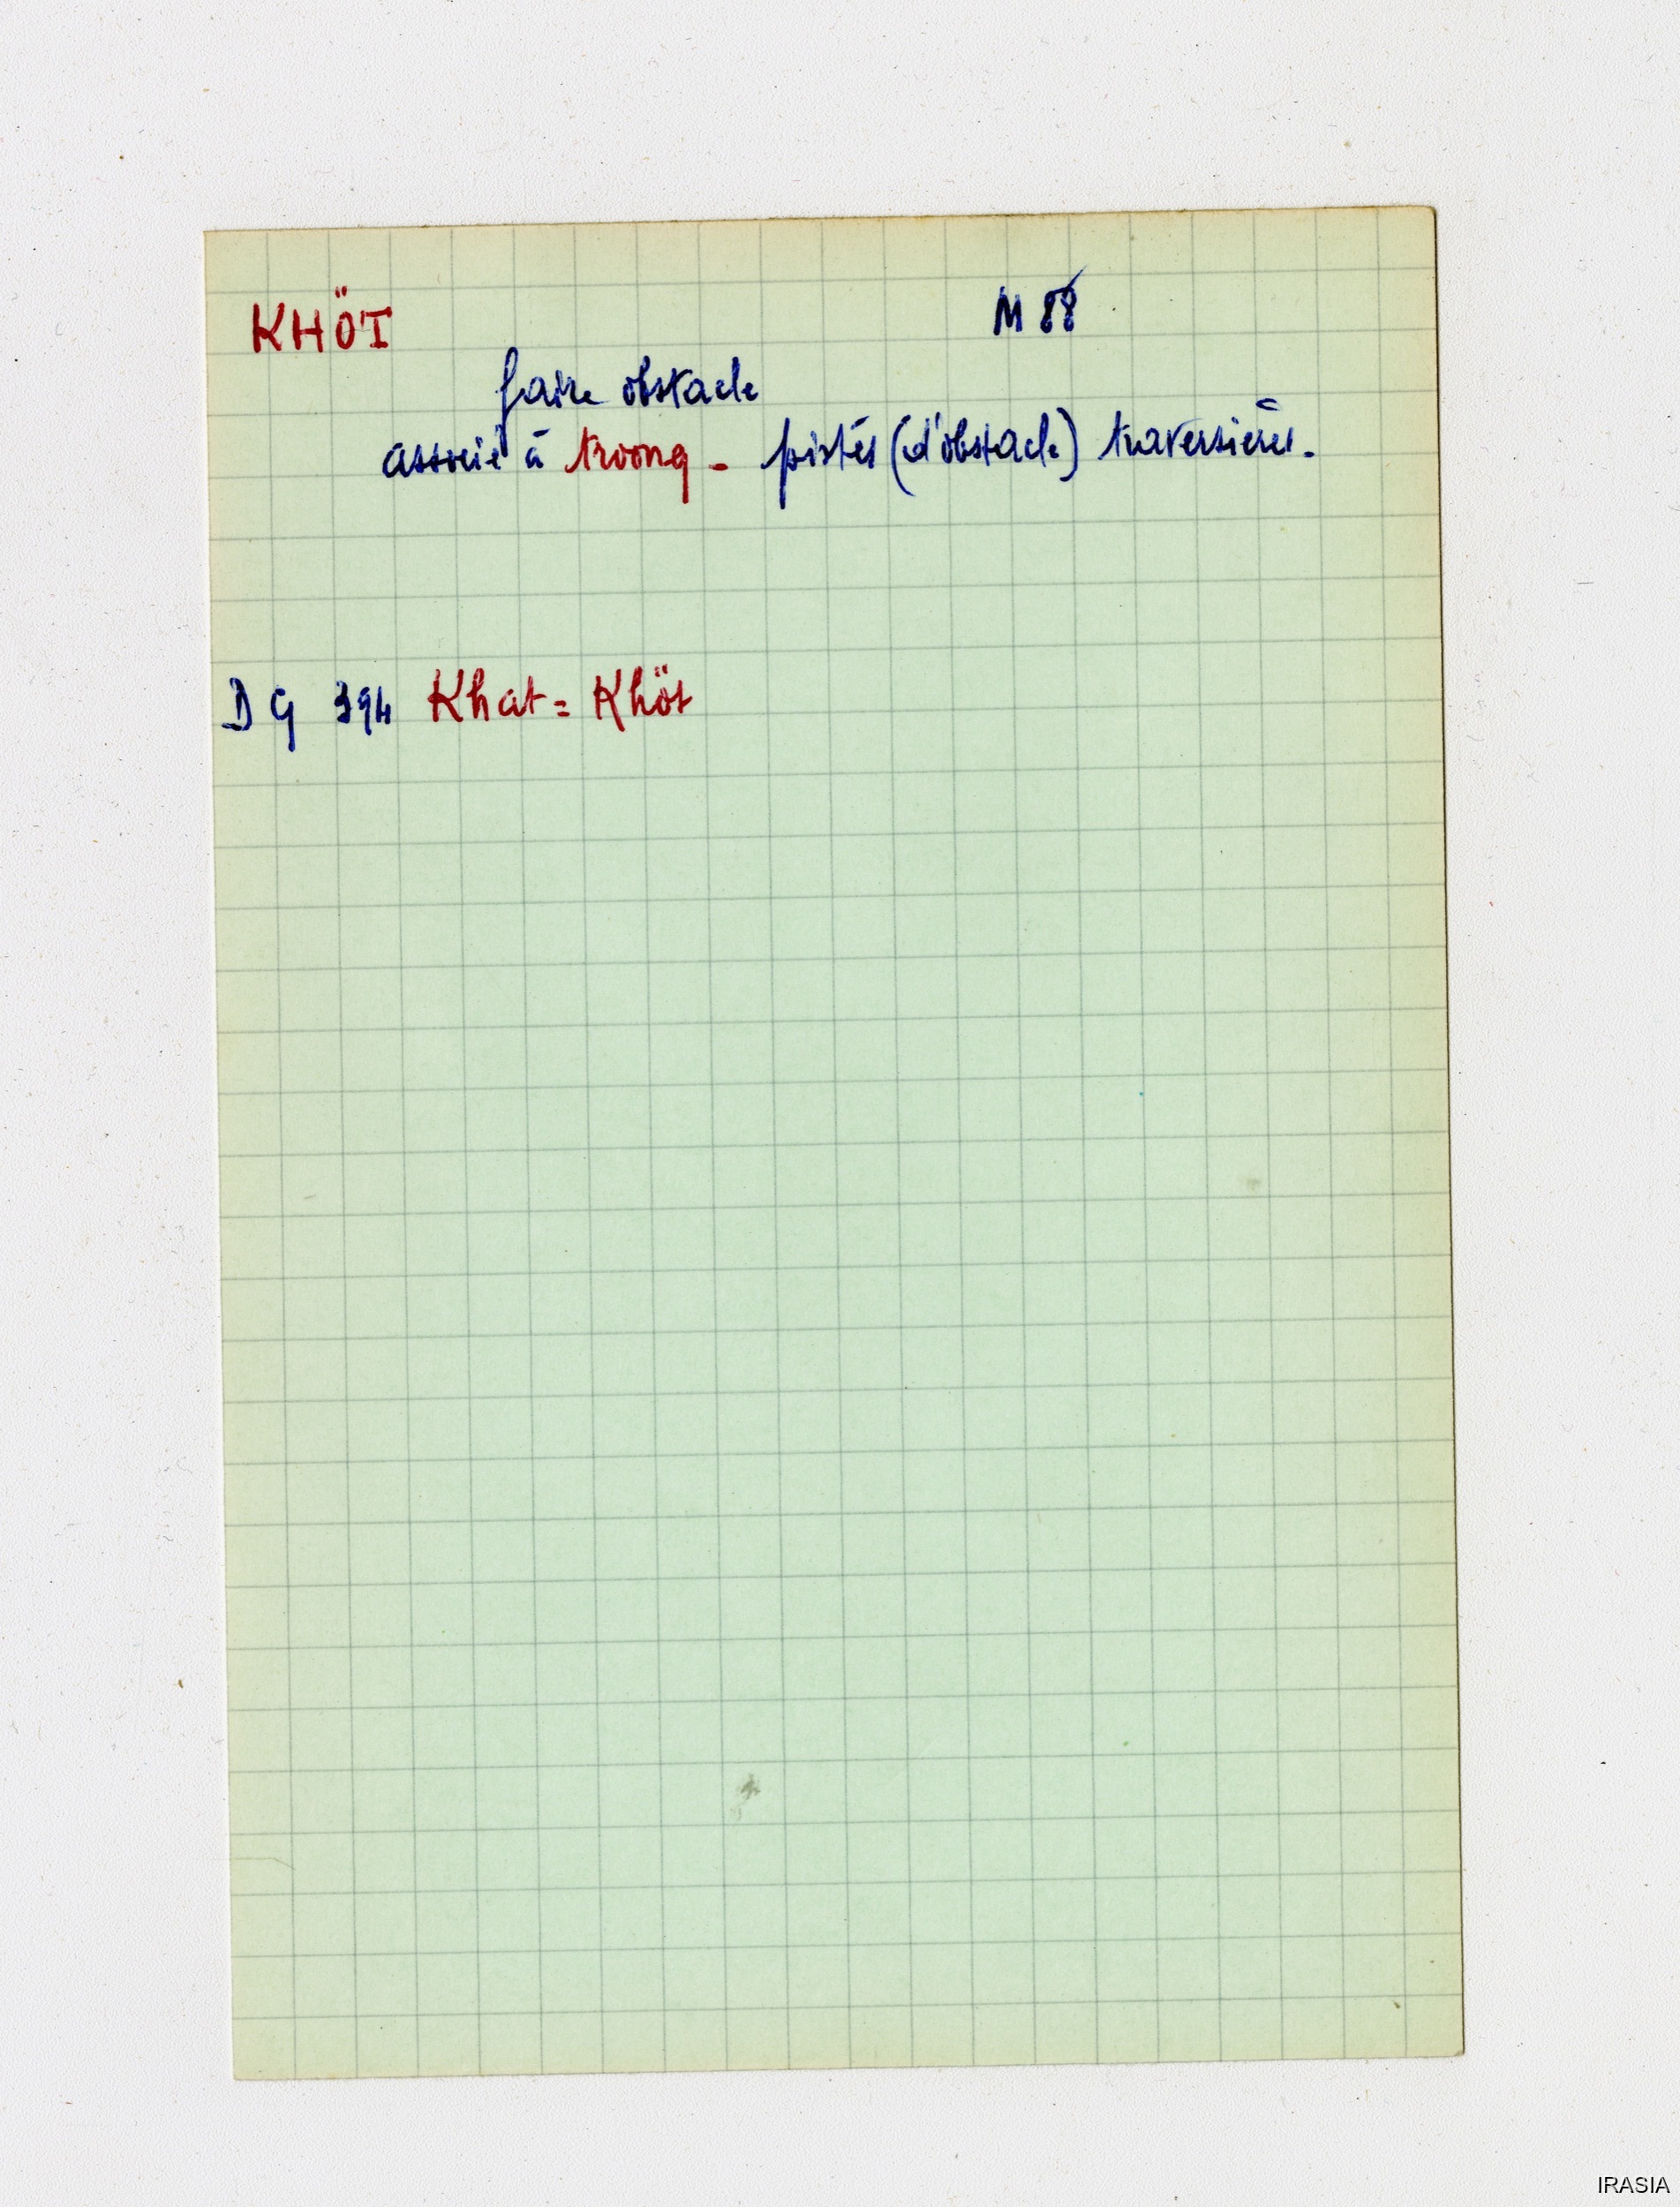 KHÖT M 88
faire obstacle
associé à troong - pistes (d'obstacle) traversières.
DG 394 Khat = Khöt
IRASIA